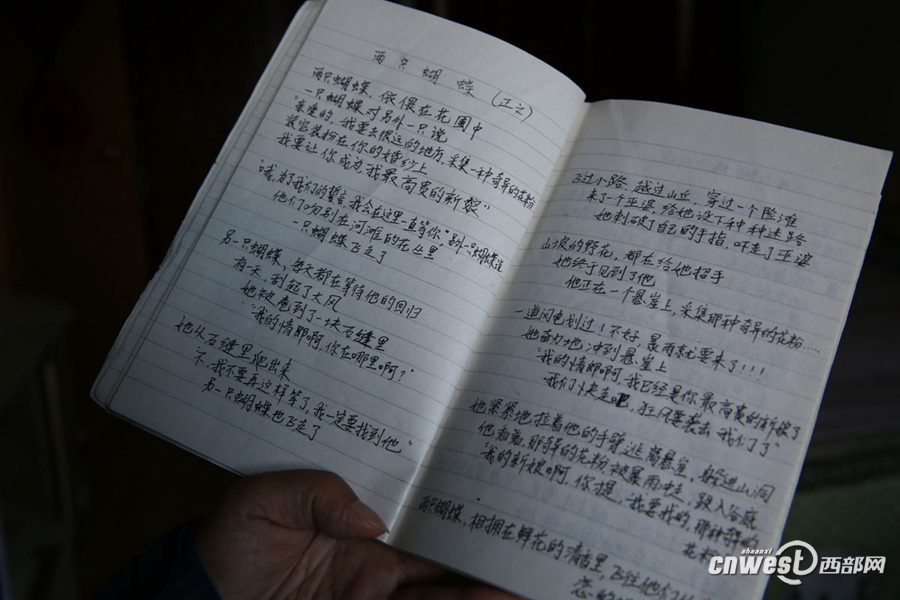 两只蝴蝶 (正立)
两只蝴蝶，依偎在花園中
一只蝴蝶对另外一只说
"亲爱的，我要去很远的地方，采集一种奇异的花粉
装在你的婚纱上
我要让你成为，我最高贵的新娘"
"哦，为了我们的誓言，我会在这里一直等你"，另外一只蝴蝶说
他们吻别在河滩的花丛里
一只蝴蝶飞走了
另一只蝴蝶，每天都在等待他的回归
有一天，刮起了大风
她被卷到了一块石缝里
"我的情郎啊，你在哪里啊？"
她从石缝里爬出来
"不，我不要再这样等了，我一定要找到他"
另一只蝴蝶也飞走了
过小路，越过山丘，穿过一个险滩
来了一个巫婆，给她设下种种迷路
她刺破了自己的手指，吓走了巫婆
山坡的野花，都在给她招手
她终于见到了他
他正在一个悬崖上，采集那种奇异的花粉……
一道闪电划过！不好，暴雨就要来了！！！
她奋力地，冲到悬崖上
"我的情郎啊，我已经是你最高贵的新娘了
我们快走吧，狂风要袭去我们了"
她紧紧地拉着他的手臂逃离悬崖，躲进山洞
他看着，那奇异的花粉被暴雨 毁入谷底
"我的新娘啊，你 ，我要找的，那种奇异的
花粉
两只蝴蝶，相拥在鲜花的清香里 飞往他们
恋的
shaanxi
cnwest 西部网